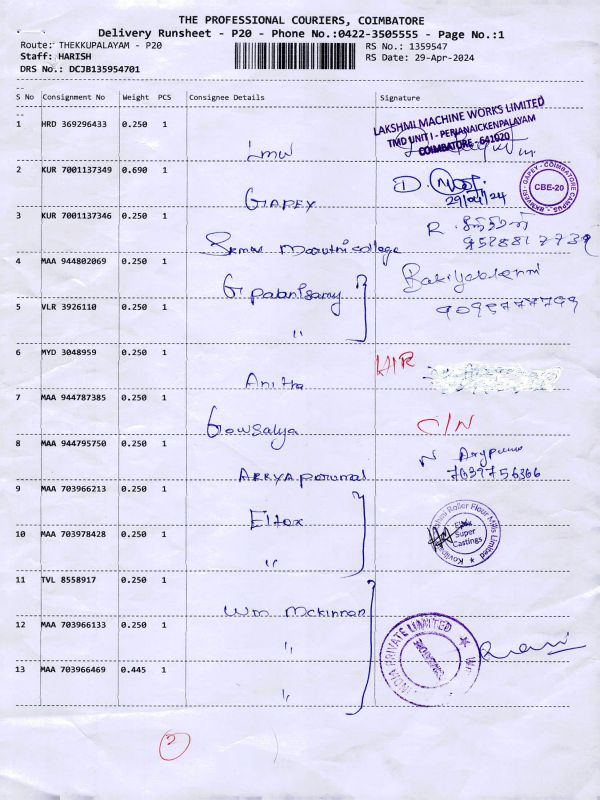 THE PROFESSIONAL COURIERS, COIMBATORE
Delivery Runsheet - P20 - Phone No.:0422-3505555 - Page No.:1
Route: THEKKUPALAYAM - P20 RS No.: 1359547
Staff: HARISH RS Date: 29-Apr-2024
DRS No.: DCJB135954701
S No Consignment No Weight PCS Consignee Details Signature
1 HRD 369296433 0.250 1
LAKSHMI MACHINE WORKS LIMITED
TMD UNIT I - PERIANAICKENPALAYAM
COIMBATORE - 641020
LMW
2 KUR 7001137349 0.690 1
D.
29/04/24
CBE-20
GAPEY
3 KUR 7001137346 0.250 1
R.
9528817739
college
4 MAA 944802069 0.250 1
5 VLR 3926110 0.250 1
"
6 MYD 3048959 0.250 1
Anitha
7 MAA 944787385 0.250 1
Gowsalya C/N
8 MAA 944795750 0.250 1
N
7639756366
9 MAA 703966213 0.250 1
Eltex
Roller Flour Mills Limited
Eltex
Super
Castings
10 MAA 703978428 0.250 1
"
11 TVL 8558917 0.250 1
Wm Mckinnan
12 MAA 703966133 0.250 1
"
INDIA PRIVATE LIMITED
13 MAA 703966469 0.445 1
"
2